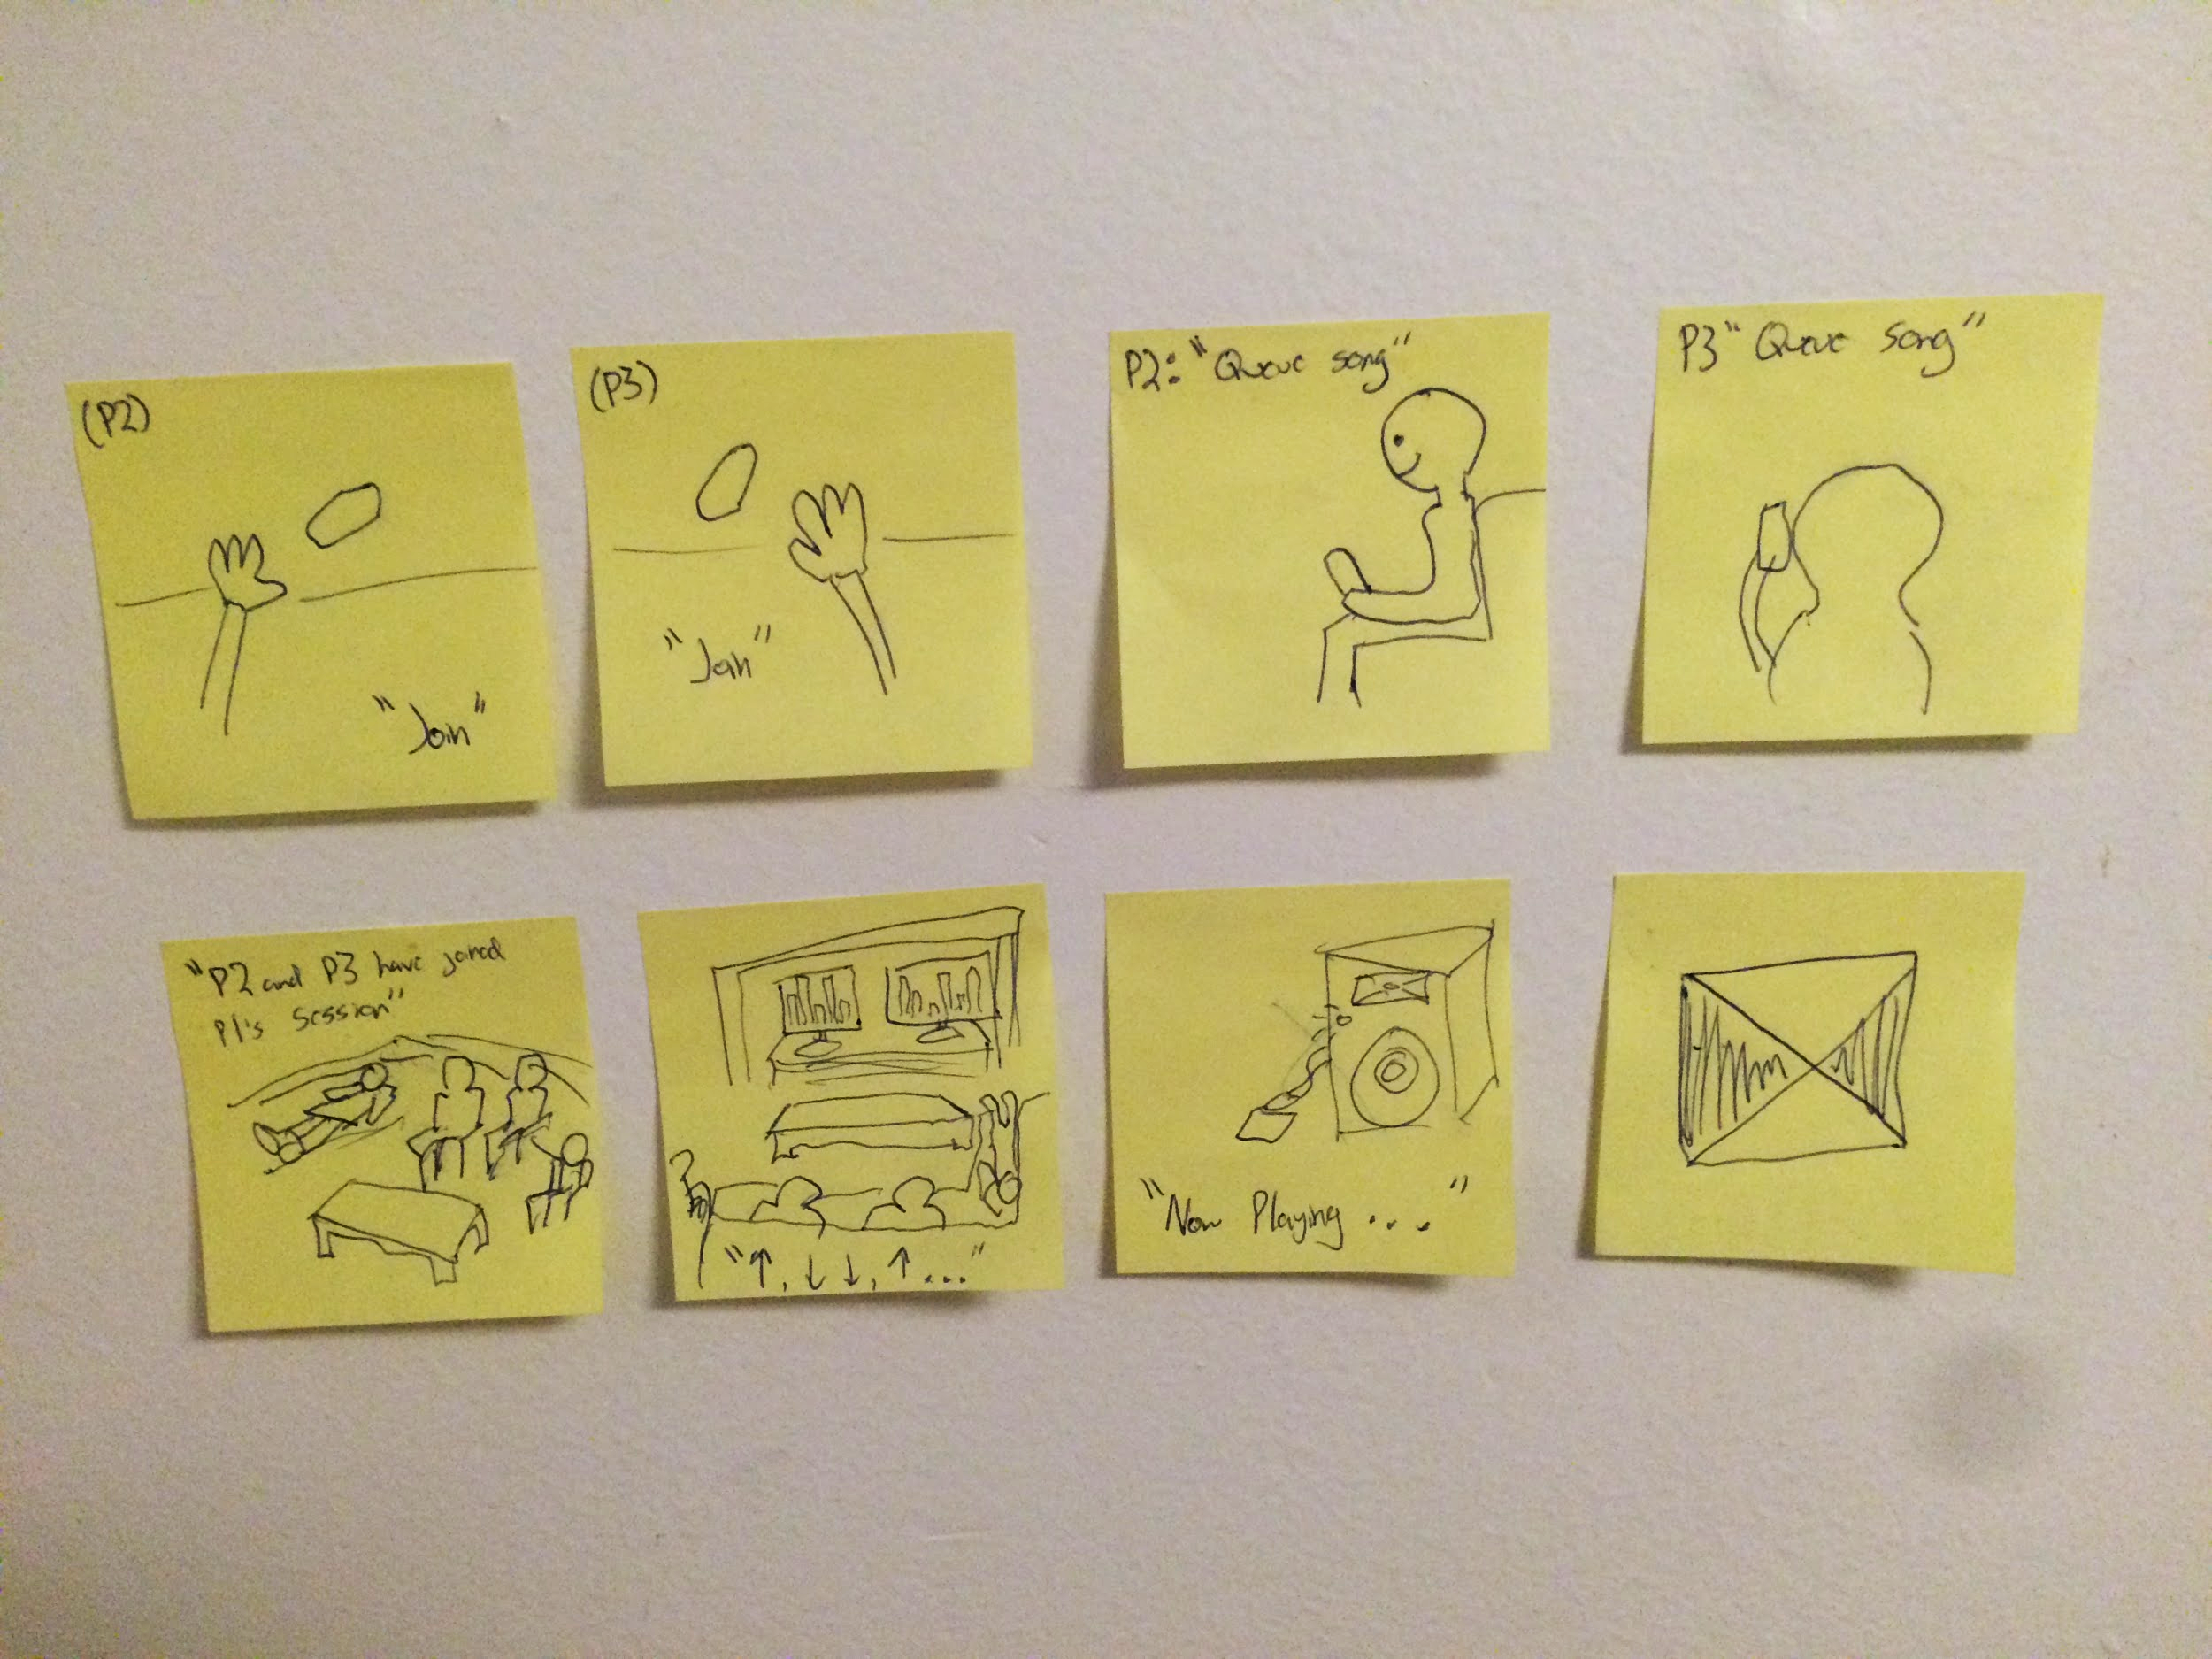 (P2)
"Join"
(P3)
"Join"
P2: "Queue song"
P3 "Queue song"
"P2 and P3 have joined
P1's session"
"↑, ↓ ↓, ↑..."
"Now Playing ... "